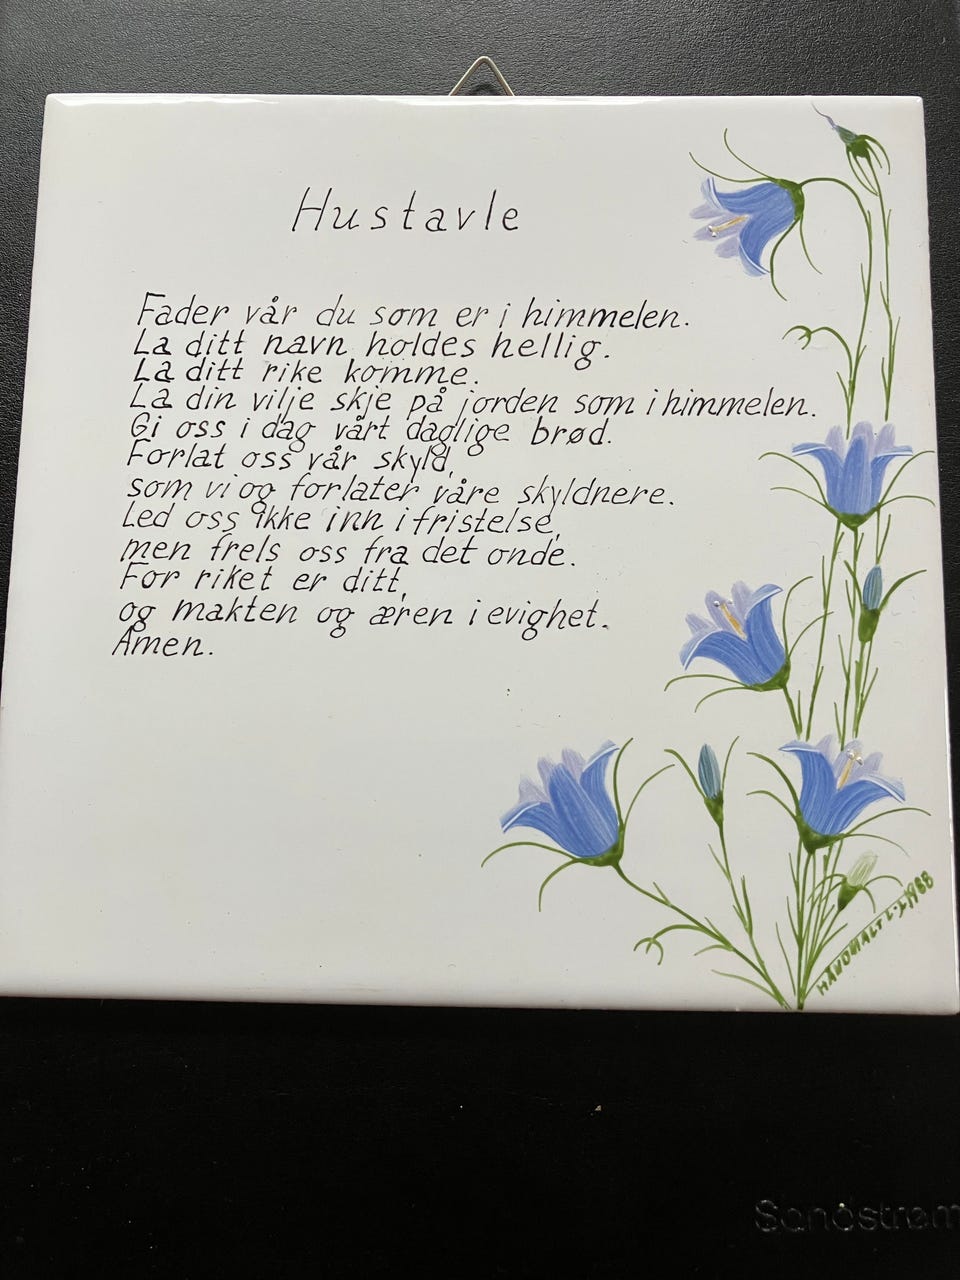 Hustavle
Fader vår du som er i himmelen.
La ditt navn holdes hellig.
La ditt rike komme.
La din vilje skje på jorden som i himmelen.
Gi oss i dag vårt daglige brød.
Forlat oss vår skyld,
som vi og forlater våre skyldnere.
Led oss ikke inn i fristelse,
men frels oss fra det onde.
For riket er ditt,
og makten og æren i evighet.
Amen.
HÅNDMALT L.J 1988
Sandstrøm